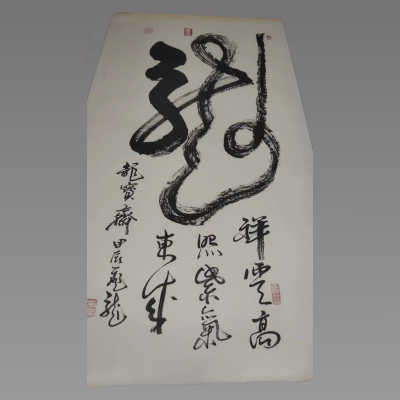 龍
祥雲高
照紫氣
東來
龍寶齋甲辰龍